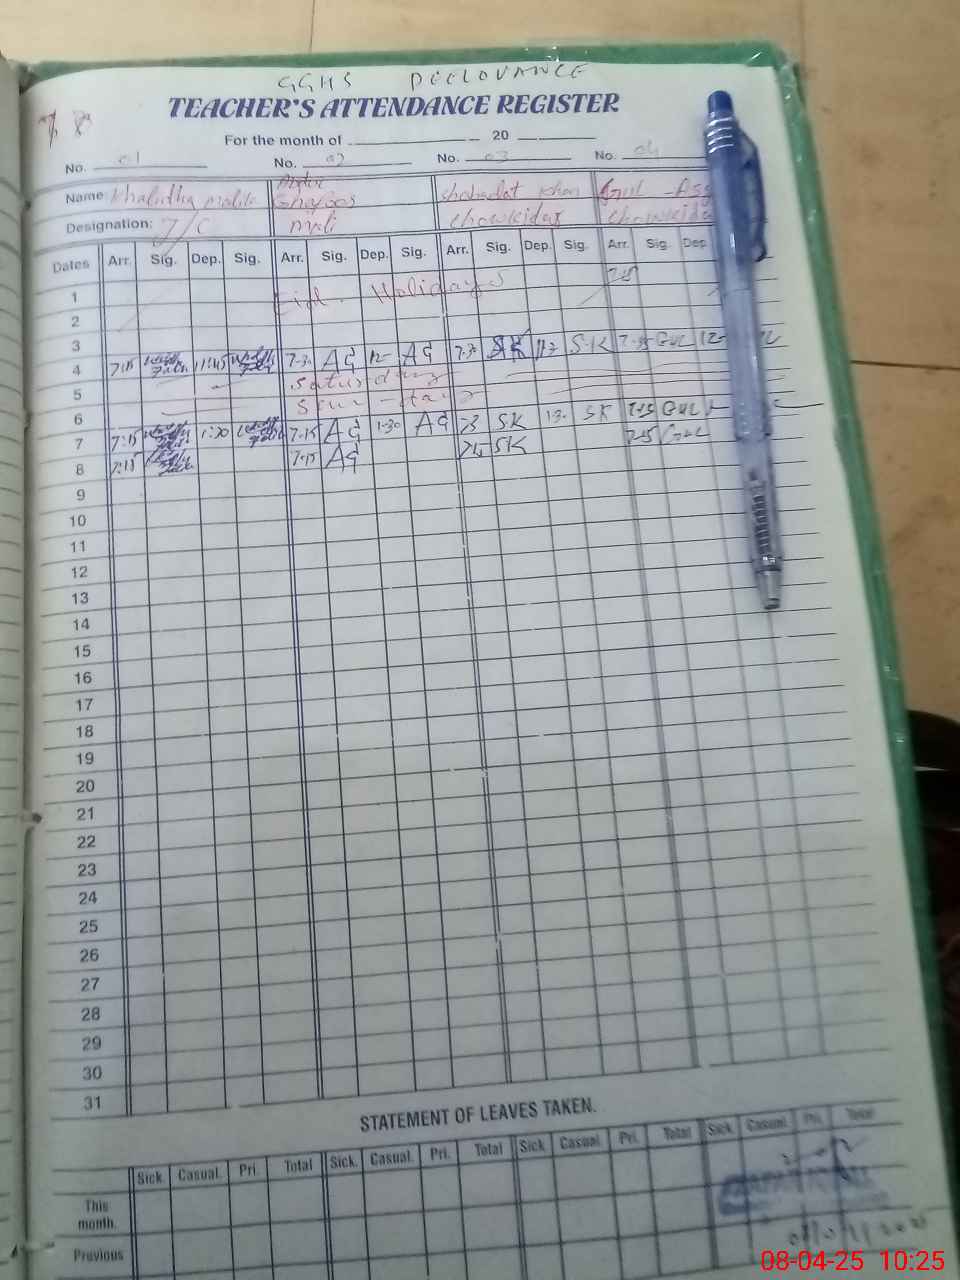 GGHS DEELOVANCE
TEACHER'S ATTENDANCE REGISTER
For the month of 20
No. 01 No. 02 No. 03 No. 04
Name: Khalutha malik Abdul Ghafoor Shahadat Khan Gul
Designation: J/C Mali Chowkidar Chowkidar
Dates Arr. Sig. Dep. Sig. Arr. Sig. Dep. Sig. Arr. Sig. Dep. Sig. Arr. Sig. Dep.
1 Eid. Holidays
2
3
4 7:15 11:45 7-30 AG 12- AG 7-30 SK S-K GUL 12-
5 Saturday
6 Sun-day
7 7:15 1:30 7-15 AG 1-30 AG SK 1-30 SK 7-15 GUL
8 7:15 7-15 AG SK 7-15 GUL
9
10
11
12
13
14
15
16
17
18
19
20
21
22
23
24
25
26
27
28
29
30
31
STATEMENT OF LEAVES TAKEN.
Sick. Casual. Pri. Total Sick. Casual. Pri. Total Sick Casual. Pri. Total Sick. Casual. Pri. Total
This month.
Previous
08-04-25 10:25